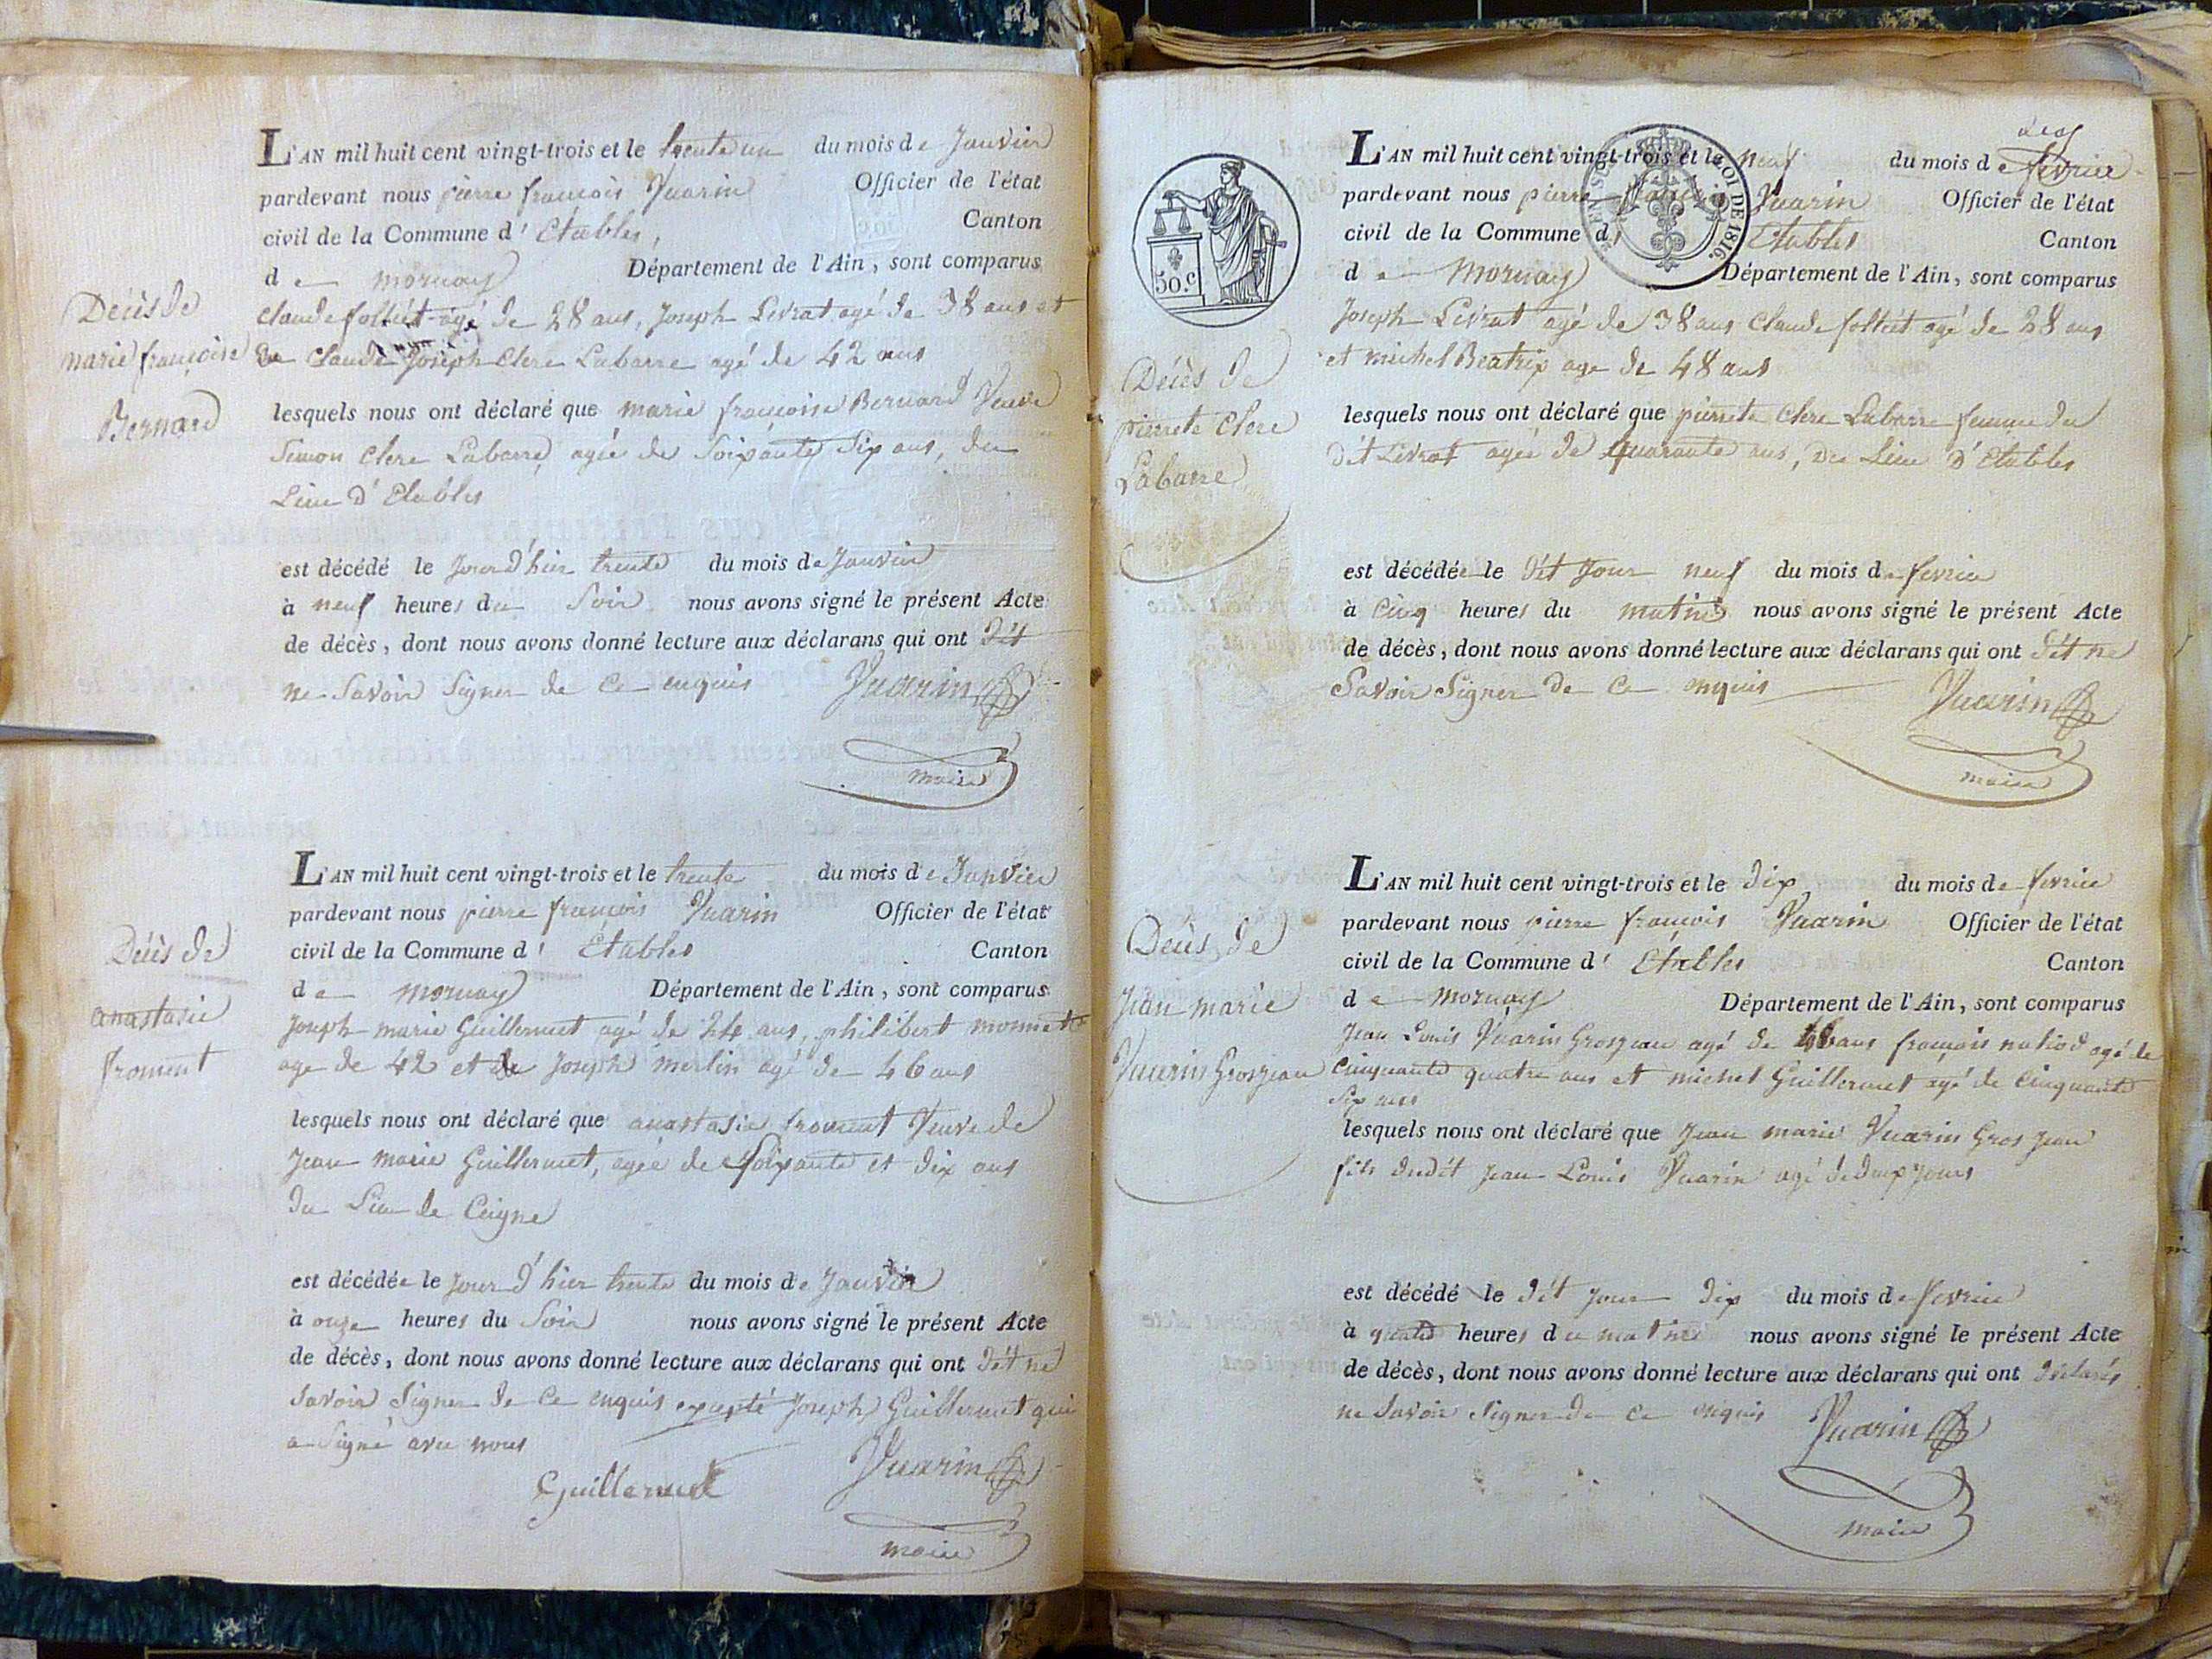 Décès de
marie françoise
Bernard
L'AN mil huit cent vingt-trois et le trente un du mois de Janvier
pardevant nous pierre francois Vuarin Officier de l'état
civil de la Commune d' Etables, Canton
de mornay Département de l'Ain, sont comparus
claude folliet agé de 28 ans, Joseph Livrat agé de 38 ans et
de claude Joseph Clerc Labarre agé de 42 ans
lesquels nous ont déclaré que marie francoise Bernard Veuve
Simon Clerc Labarre, agée de Soixante Six ans, du
Lieu d'Etables
est décédé le jour d'hier trente du mois de Janvier
à neuf heures du Soir nous avons signé le présent Acte
de décès, dont nous avons donné lecture aux déclarans qui ont dit
ne Savoir Signer de Ce enquis Vuarin
maire
Décès de
anastasie
froment
L'AN mil huit cent vingt-trois et le trente du mois de Janvier
pardevant nous pierre françois Vuarin Officier de l'état
civil de la Commune d' Etables Canton
de mornay Département de l'Ain, sont comparus
Joseph marie Guillermet agé de 24 ans, philibert monnet
age de 42 et de Joseph merlin agé de 46 ans
lesquels nous ont déclaré que anastasie froment Veuve de
Jean Marie Guillermet, agée de Soixante et dix ans
du Lieu de Ceigne
est décédée le jour d'hier trente du mois de Janvier
à onze heures du Soir nous avons signé le présent Acte
de décès, dont nous avons donné lecture aux déclarans qui ont dit ne
Savoir Signer de Ce enquis excepté Joseph Guillermet qui
a Signé avec nous
Guillermet Vuarin
maire
50.c
LOI DE 1816.
Décès de
pierrete Clerc
Labarre
L'AN mil huit cent vingt-trois et le neuf du mois de fevrier
pardevant nous pierre françois Vuarin Officier de l'état
civil de la Commune d' Etables Canton
de Mornay Département de l'Ain, sont comparus
Joseph Livrat agé de 38 ans Claude folliet agé de 28 ans
et michel Beatrix age de 48 ans
lesquels nous ont déclaré que pierrete Clerc Labarre femme du
dit Livrat agée de quarante ans, du Lieu d'Etables
est décédée le dit Jour neuf du mois de fevrier
à Cinq heures du matin nous avons signé le présent Acte
de décès, dont nous avons donné lecture aux déclarans qui ont dit ne
Savoir Signer de Ce enquis Vuarin
maire
Décès de
Jean marie
Vuarin Grosjean
L'AN mil huit cent vingt-trois et le dix du mois de fevrier
pardevant nous pierre françois Vuarin Officier de l'état
civil de la Commune d' Etables Canton
de mornay Département de l'Ain, sont comparus
Jean Louis Vuarin Grosjean agé de ans françois agé de
Cinquante quatre ans et michel Guillermet agé de Cinquante
Six ans
lesquels nous ont déclaré que Jean marie Vuarin Gros Jean
fils dudit Jean Louis Vuarin agé de deux jours
est décédé le dit jour dix du mois de fevrier
à quatre heures du matin nous avons signé le présent Acte
de décès, dont nous avons donné lecture aux déclarans qui ont declarés
ne Savoir Signer de Ce enquis Vuarin
maire